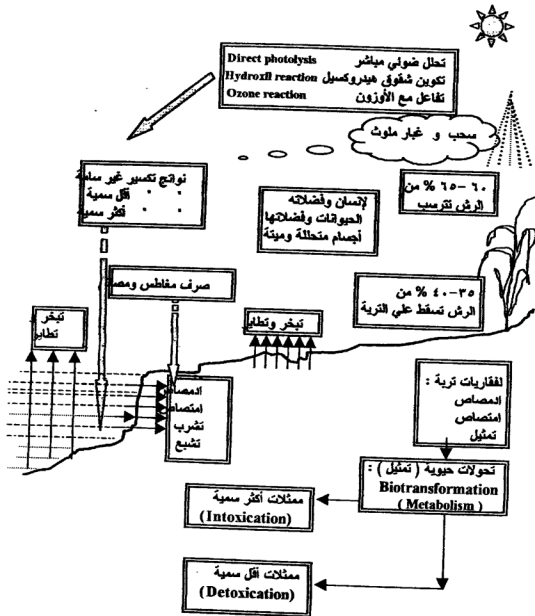 تحلل ضوئي مباشر Direct photolysis
تكوين شقوق هيدروكسيل Hydroxfl reaction
تفاعل مع الأوزون Ozone reaction
سحب و غبار ملوث
نواتج تكسير غير سامة
" " أقل سمية
" " أكثر سمية
لإنسان وفضلاته
الحيوانات وفضلاتها
أجسام متحللة وميتة
٦٠ – ٦٥ % من
الرش تترسب
صرف مغاطس ومصا
٣٥-٤٠ % من
الرش تسقط علي التربة
تبخر
تطاير
تبخر وتطاير
ادمصاص
امتصاص
تشرب
تشبع
لفقاريات تربة :
ادمصاص
امتصاص
تمثيل
تحولات حيوية ( تمثيل ) :
Biotransformation
( Metabolism )
ممثلات أكثر سمية
(Intoxication)
ممثلات أقل سمية
(Detoxication)